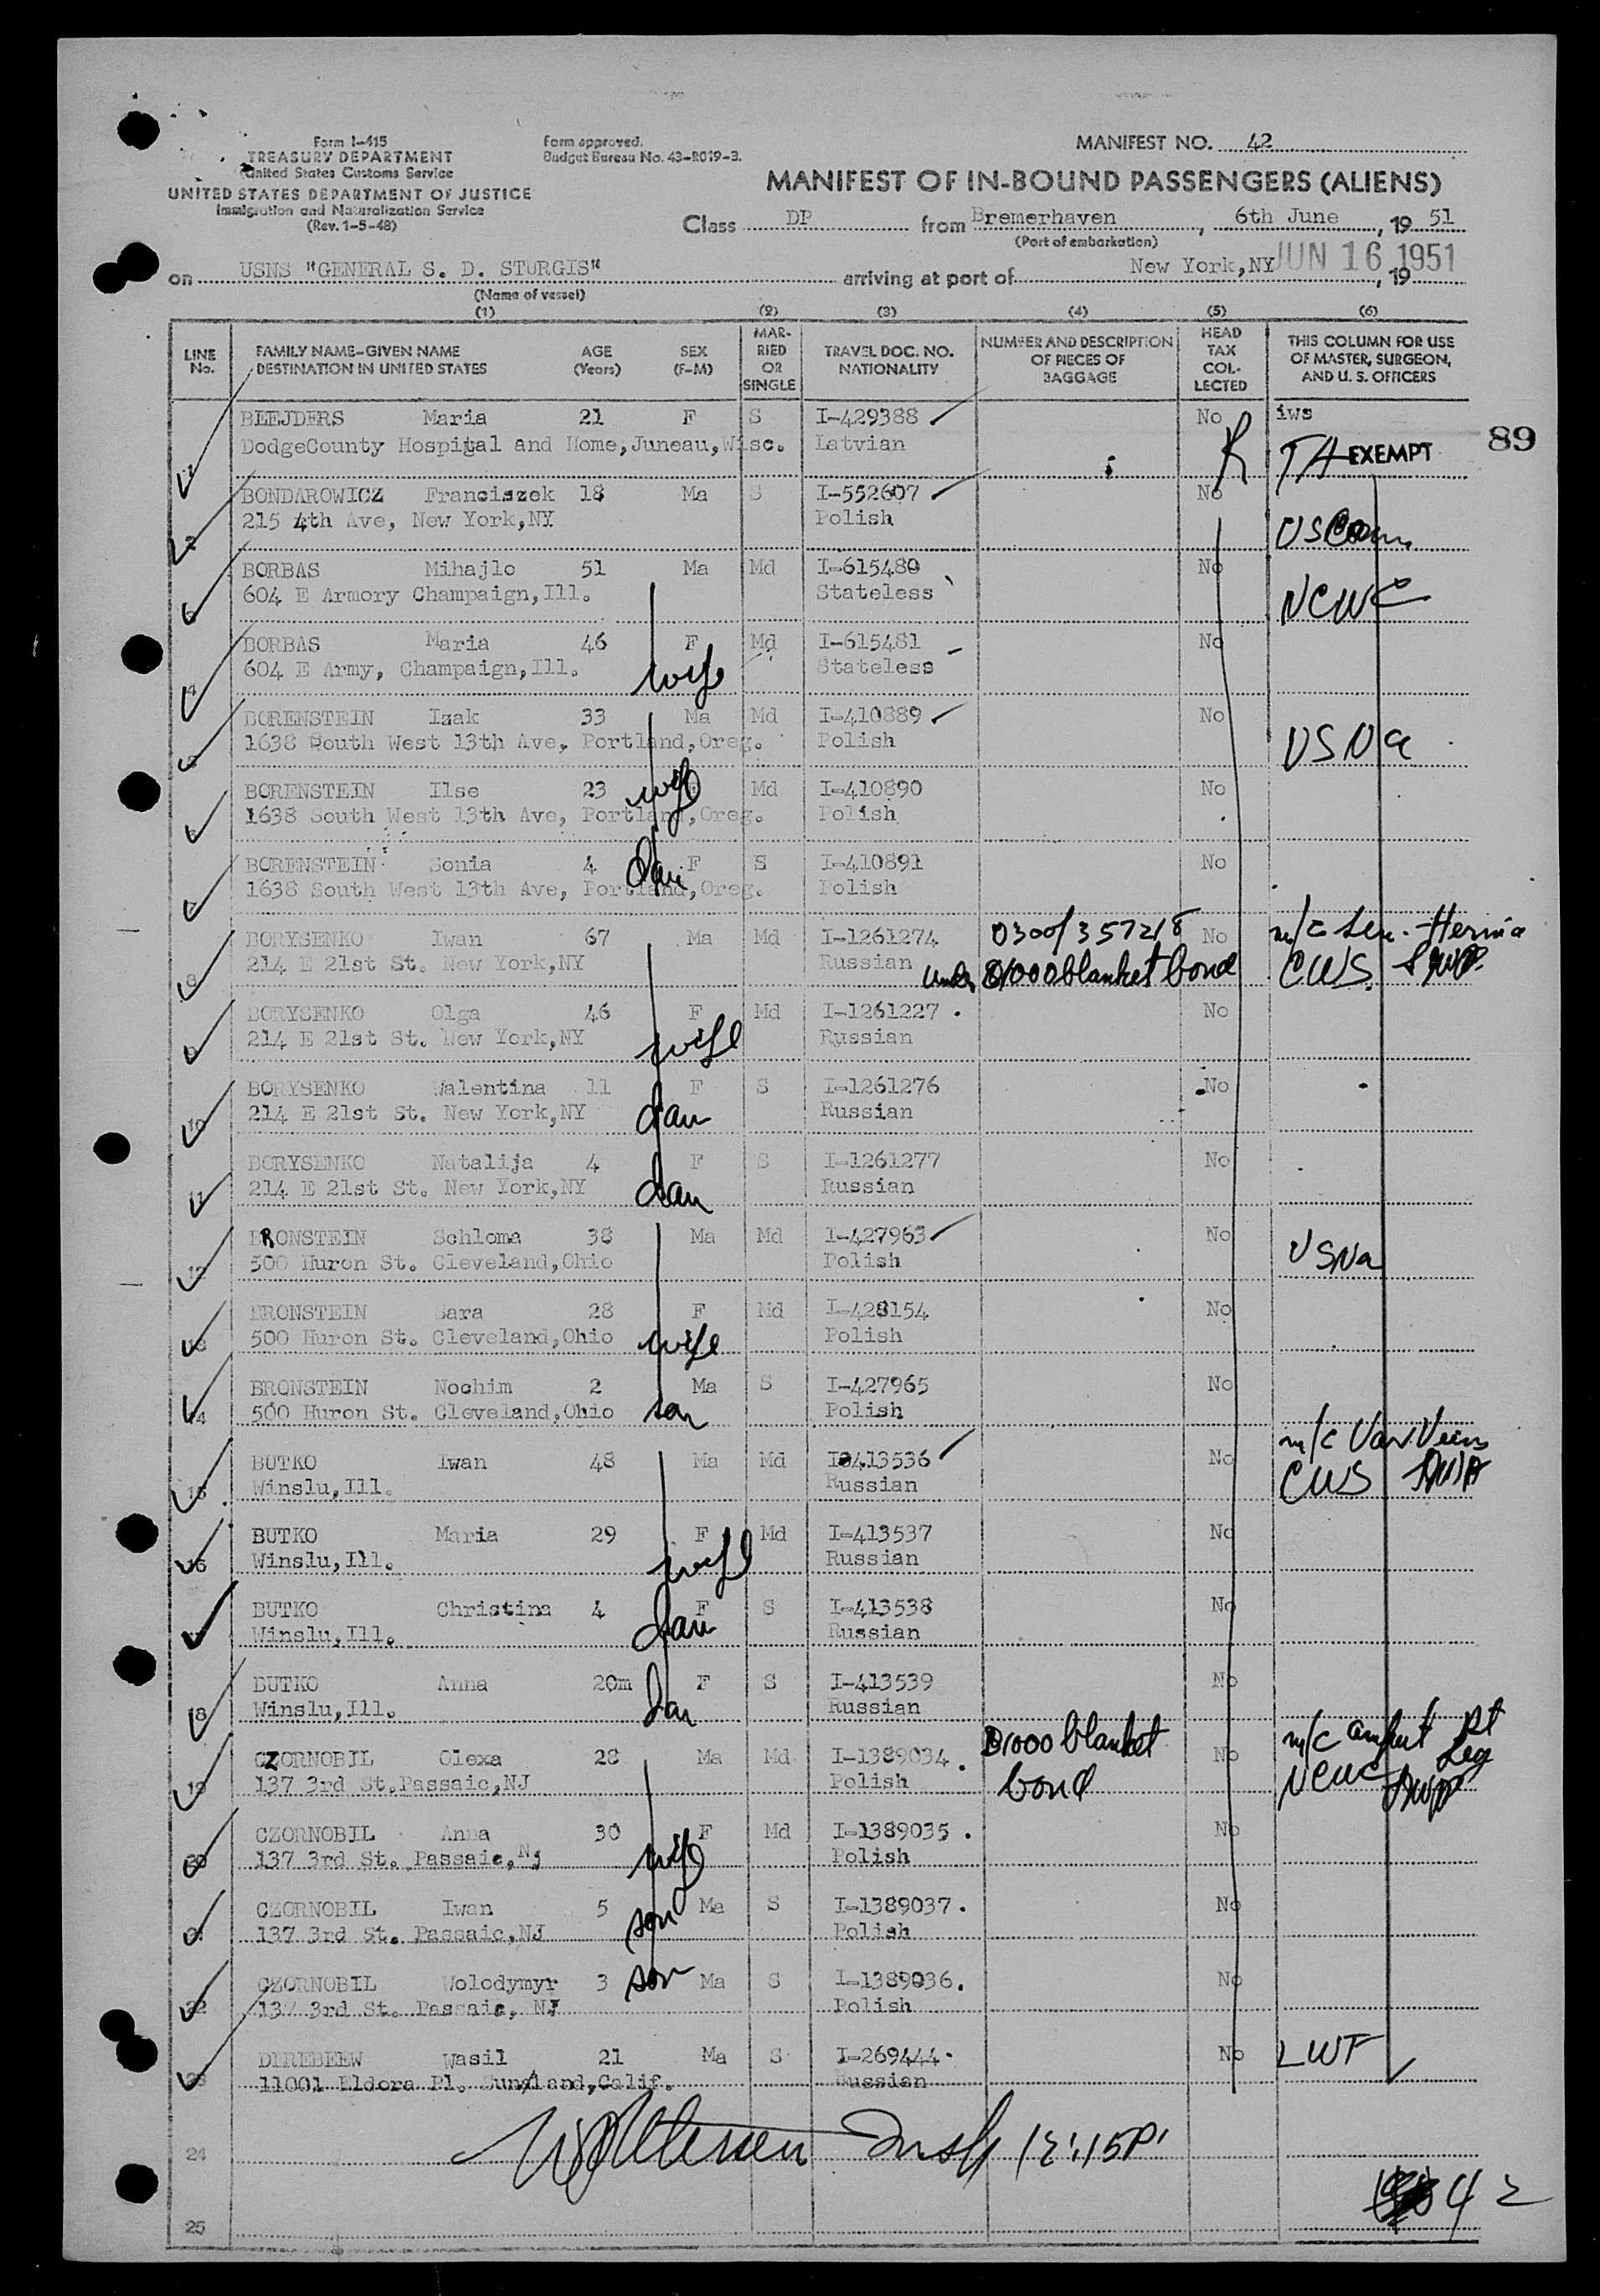 Form I-415
TREASURY DEPARTMENT
United States Customs Service
UNITED STATES DEPARTMENT OF JUSTICE
Immigration and Naturalization Service
(Rev. 1-5-48)
Form approved.
Budget Bureau No. 43-R019-3.
MANIFEST NO. 42
MANIFEST OF IN-BOUND PASSENGERS (ALIENS)
Class DP from Bremerhaven, 6th June, 19 51
(Port of embarkation)
on USNS "GENERAL S. D. STURGIS" arriving at port of New York, NY JUN 16 1951, 19
(Name of vessel)
(1) (2) (3) (4) (5) (6)
LINE No. FAMILY NAME-GIVEN NAME DESTINATION IN UNITED STATES AGE (Years) SEX (F-M) MARRIED OR SINGLE TRAVEL DOC. NO. NATIONALITY NUMBER AND DESCRIPTION OF PIECES OF BAGGAGE HEAD TAX COLLECTED THIS COLUMN FOR USE OF MASTER, SURGEON, AND U. S. OFFICERS
BLEJDERS Maria 21 F S I-429388 No iws
DodgeCounty Hospital and Home, Juneau, Wisc. Latvian R TA EXEMPT 89
BONDAROWICZ Franciszek 18 Ma S I-552607 No
215 4th Ave, New York, NY Polish USCom
BORBAS Mihajlo 51 Ma Md I-615480 No
604 E Armory Champaign, Ill. Stateless NCWC
BORBAS Maria 46 F Md I-615481 No
604 E Army, Champaign, Ill. wife Stateless
BORENSTEIN Izak 33 Ma Md I-410889 No
1638 South West 13th Ave, Portland, Oreg. Polish USNa
BORENSTEIN Ilse 23 wife Md I-410890 No
1638 South West 13th Ave, Portland, Oreg. Polish
BORENSTEIN Sonia 4 dau F S I-410891 No
1638 South West 13th Ave, Portland, Oreg. Polish
8 BORYSENKO Iwan 67 Ma Md I-1261274 0300/357218 No m/c Sen. Hernia
214 E 21st St. New York, NY Russian under $1000 blanket bond CWS
BORYSENKO Olga 46 F Md I-1261227 No
214 E 21st St. New York, NY wife Russian
10 BORYSENKO Walentina 11 F S I-1261276 No
214 E 21st St. New York, NY dau Russian
11 BORYSENKO Natalija 4 F S I-1261277 No
214 E 21st St. New York, NY dau Russian
BRONSTEIN Schloma 38 Ma Md I-427963 No
500 Huron St. Cleveland, Ohio Polish USNa
BRONSTEIN Sara 28 F Md I-428154 No
500 Huron St. Cleveland, Ohio wife Polish
14 BRONSTEIN Nochim 2 Ma S I-427965 No
500 Huron St. Cleveland, Ohio son Polish
15 BUTKO Iwan 48 Ma Md I-413536 No m/c Var. Veins
Winslu, Ill. Russian CWS
16 BUTKO Maria 29 F Md I-413537 No
Winslu, Ill. wife Russian
BUTKO Christina 4 F S I-413538 No
Winslu, Ill. dau Russian
18 BUTKO Anna 20m F S I-413539 No
Winslu, Ill. dau Russian
19 CZORNOBIL Olexa 28 Ma Md I-1389034 $1000 blanket bond No m/c amput Rt Leg
137 3rd St. Passaic, NJ Polish NCWC
CZORNOBIL Anna 30 F Md I-1389035 No
137 3rd St. Passaic, Nj wife Polish
CZORNOBIL Iwan 5 son Ma S I-1389037 No
137 3rd St. Passaic, NJ Polish
22 CZORNOBIL Wolodymyr 3 son Ma S I-1389036 No
137 3rd St. Passaic, NJ Polish
DEREBEEW Wasil 21 Ma S I-269444 No LWF
11001 Eldora Pl. Sunland, Calif. Russian
24 Insp 12:15P
42
25